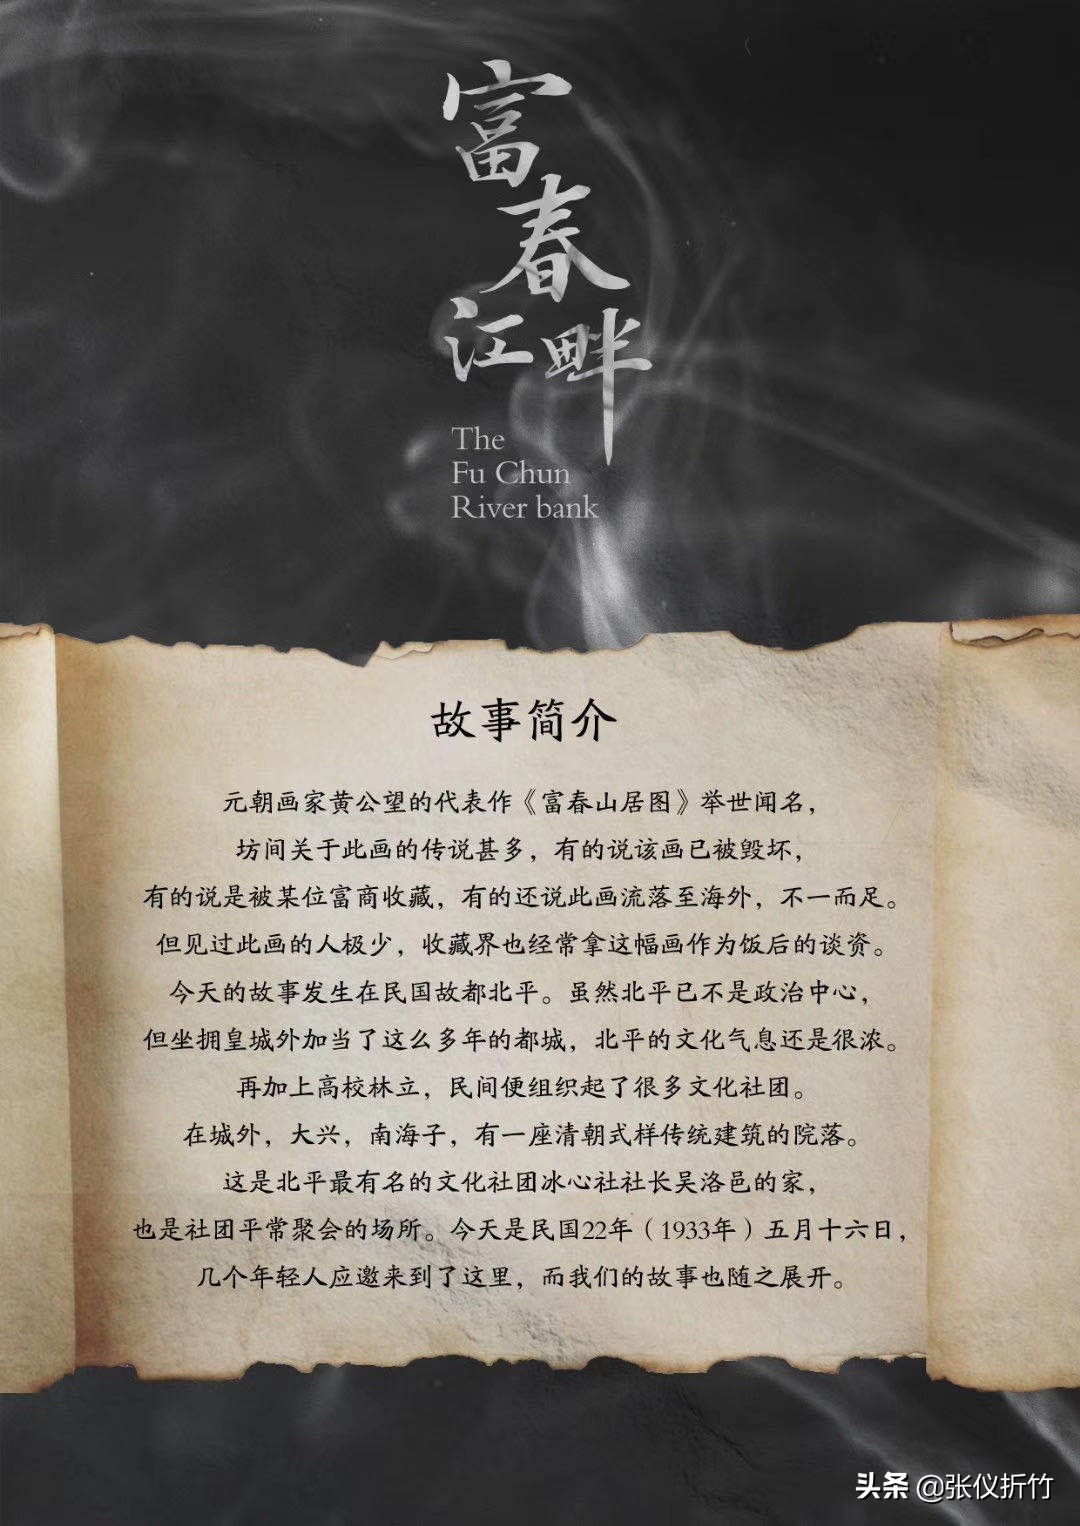 富春江畔
The
Fu Chun
River bank
故事简介
元朝画家黄公望的代表作《富春山居图》举世闻名，
坊间关于此画的传说甚多，有的说该画已被毁坏，
有的说是被某位富商收藏，有的还说此画流落至海外，不一而足。
但见过此画的人极少，收藏界也经常拿这幅画作为饭后的谈资。
今天的故事发生在民国故都北平。虽然北平已不是政治中心，
但坐拥皇城外加当了这么多年的都城，北平的文化气息还是很浓。
再加上高校林立，民间便组织起了很多文化社团。
在城外，大兴，南海子，有一座清朝式样传统建筑的院落。
这是北平最有名的文化社团冰心社社长吴洛邑的家，
也是社团平常聚会的场所。今天是民国22年（1933年）五月十六日，
几个年轻人应邀来到了这里，而我们的故事也随之展开。
头条 @张仪折竹